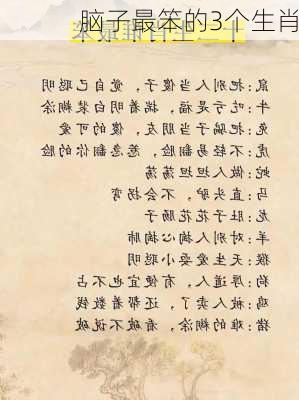 脑子最笨的3个生肖
鼠:把别人当傻子，觉自己聪明
牛:吃亏是福，揣着明白装糊涂
兔:把骗子当朋友，傻的可爱
虎:不轻易翻脸，惹急翻你的脸
蛇:做人坦坦荡荡
马:直头驴，不会拐弯
龙:肚子花花肠子
羊:对别人掏心掏肺
猴:天生爱耍小聪明
狗:厚道人，有便宜也不占
鸡:被人卖了，还帮着数钱
猪:难的糊涂，看破不说破